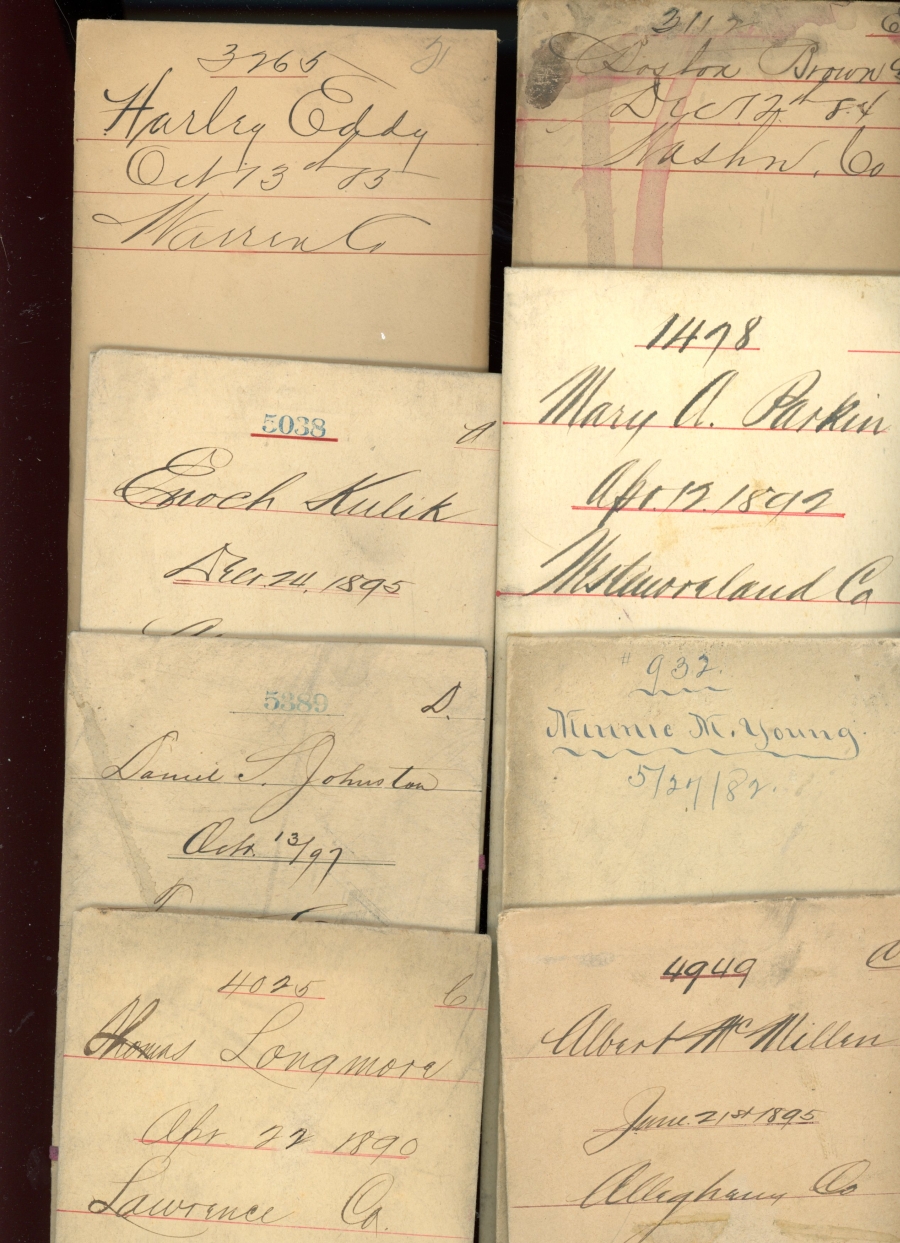 3265
Harley Eddy
Oct 13th 85
Warren Co
5038
Enoch Kulik
Decr. 24, 1895
5389
D.
Daniel S. Johnston
Octr. 13/97
4025
C
Thomas Longmore
Apr 22 1890
Lawrence Co.
3112
Boston Brown
Dec 12th 84
Washn. Co
1478
Mary A. Parkin
Apr. 12. 1892
Westmoreland Co
# 932.
Minnie M. Young
5/27/82.
4949
Albert McMillen
June. 21st 1895
Alleghany Co